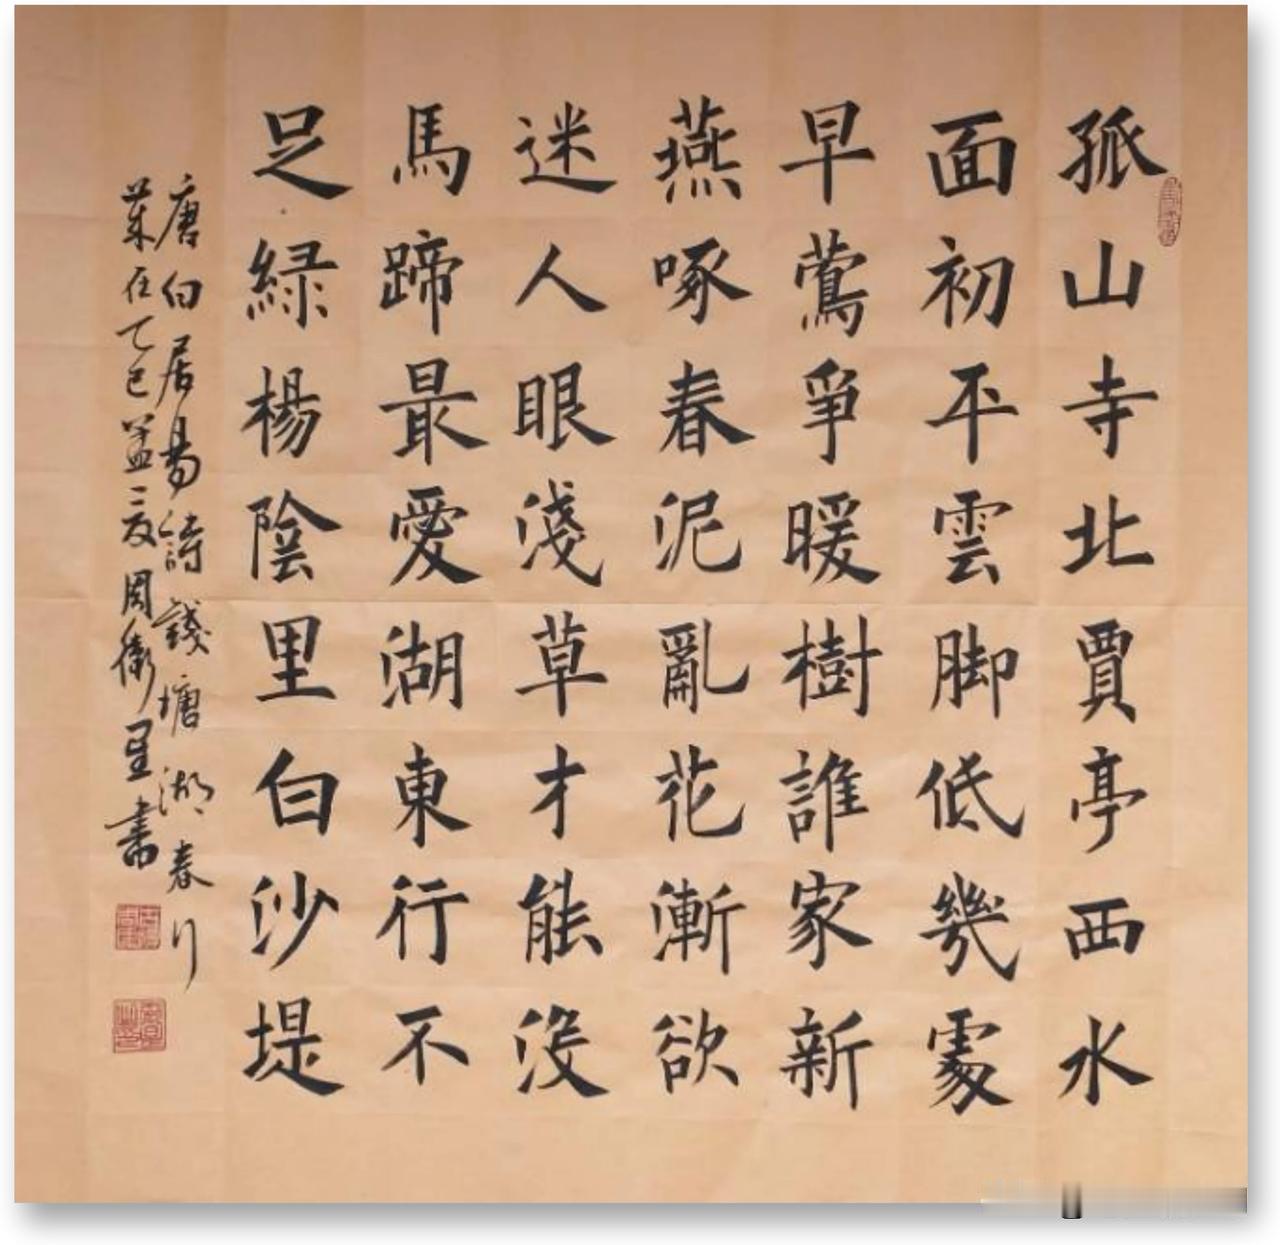 孤山寺北賈亭西水
面初平雲脚低幾處
早鶯爭暖樹誰家新
燕啄春泥亂花漸欲
迷人眼淺草才能没
馬蹄最愛湖東行不
足緑楊陰里白沙堤
唐白居易詩錢塘湖春行
歲在乙巳孟夏周衛星書